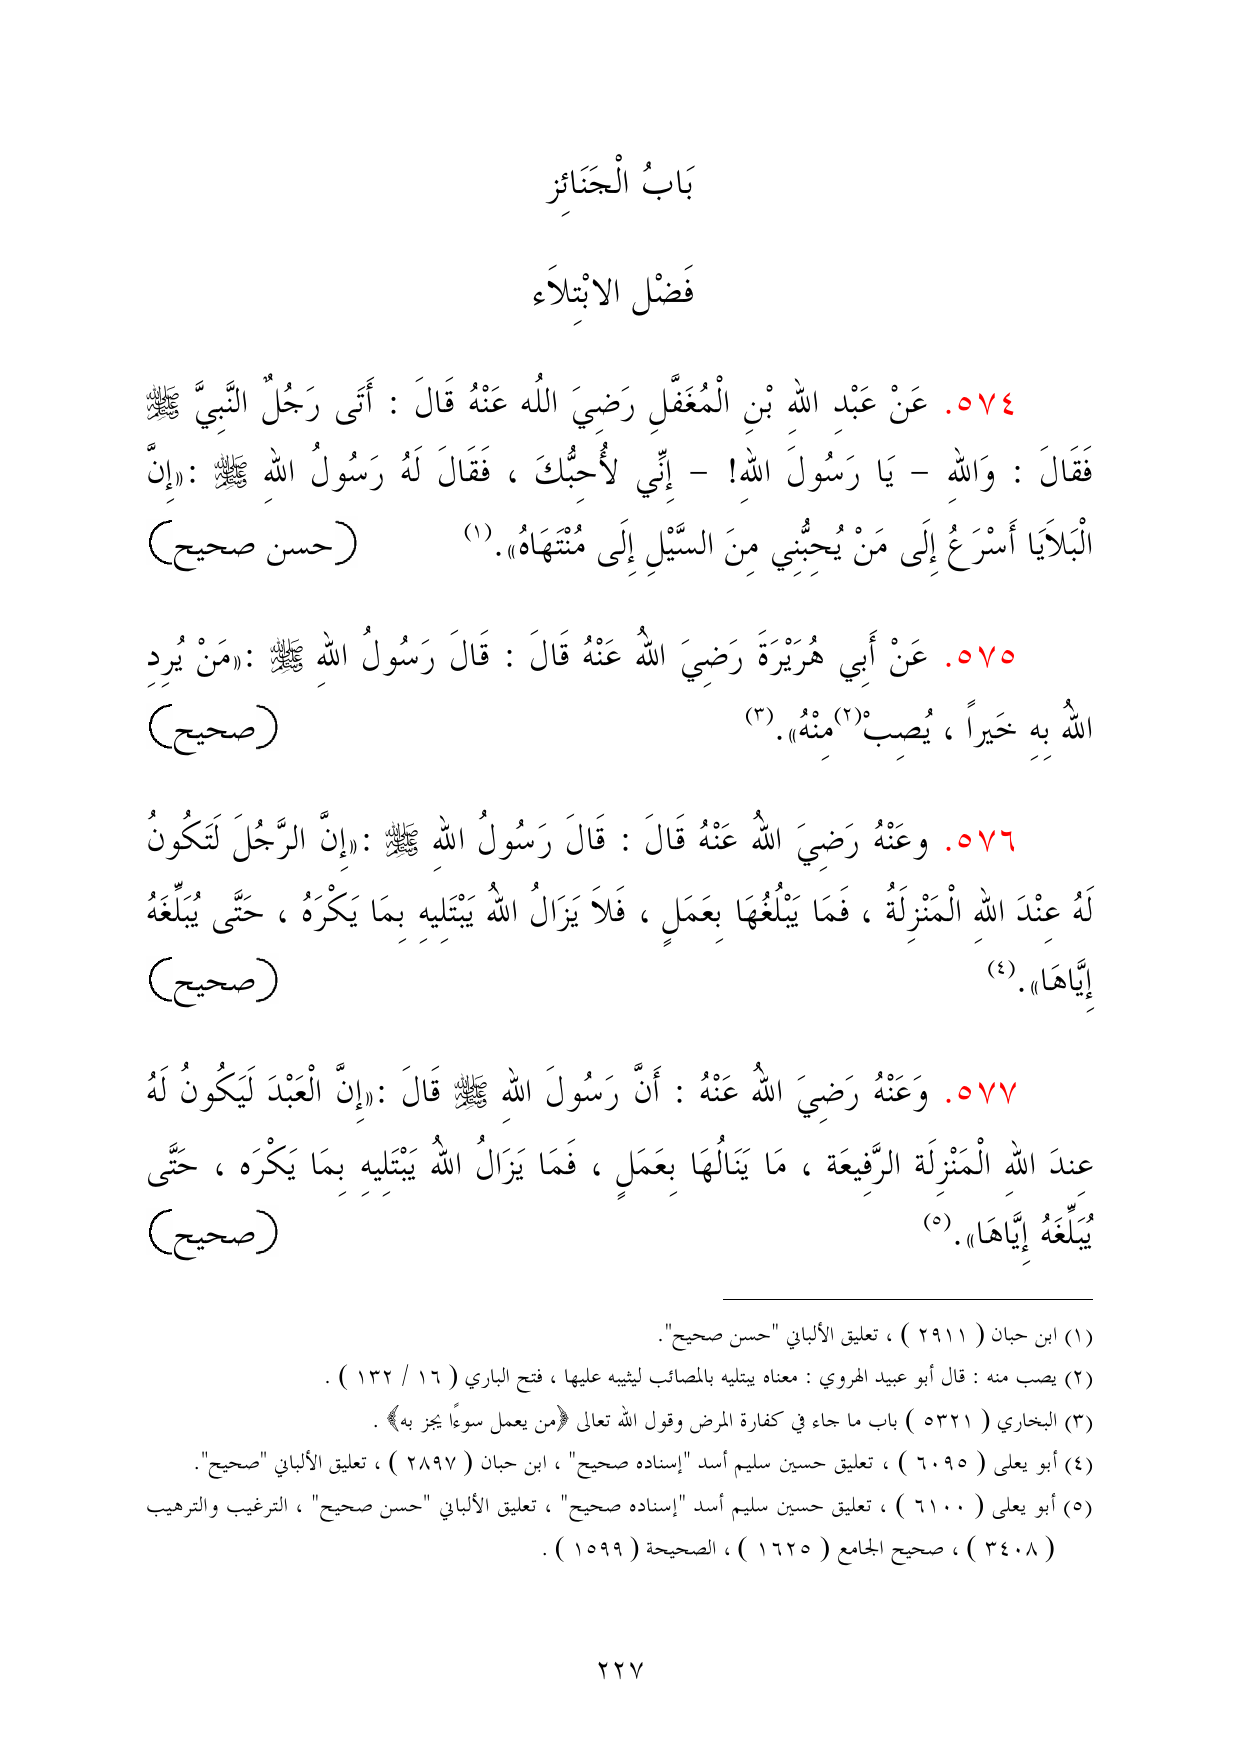 بَابُ الْجَنَائِزِ
فَضْلِ الابْتِلاَءِ
٥٧٤. عَنْ عَبْدِ اللهِ بْنِ الْمُغَفَّلِ رَضِيَ اللُه عَنْهُ قَالَ : أَتَى رَجُلٌ النَّبِيَّ ﷺ
فَقَالَ : وَاللهِ – يَا رَسُولَ اللهِ! – إِنِّي لأُحِبُّكَ ، فَقَالَ لَهُ رَسُولُ اللهِ ﷺ :«إِنَّ
الْبَلاَيَا أَسْرَعُ إِلَى مَنْ يُحِبُّنِي مِنَ السَّيْلِ إِلَى مُنْتَهَاهُ».(١) (حسن صحيح)
٥٧٥. عَنْ أَبِي هُرَيْرَةَ رَضِيَ اللهُ عَنْهُ قَالَ : قَالَ رَسُولُ اللهِ ﷺ :«مَنْ يُرِدِ
اللهُ بِهِ خَيراً ، يُصِبْ(٢)مِنْهُ».(٣) (صحيح)
٥٧٦. وعَنْهُ رَضِيَ اللهُ عَنْهُ قَالَ : قَالَ رَسُولُ اللهِ ﷺ :«إِنَّ الرَّجُلَ لَتَكُونُ
لَهُ عِنْدَ اللهِ الْمَنْزِلَةُ ، فَمَا يَبْلُغُهَا بِعَمَلٍ ، فَلاَ يَزَالُ اللهُ يَبْتَلِيهِ بِمَا يَكْرَهُ ، حَتَّى يُبَلِّغَهُ
إِيَّاهَا».(٤) (صحيح)
٥٧٧. وَعَنْهُ رَضِيَ اللهُ عَنْهُ : أَنَّ رَسُولَ اللهِ ﷺ قَالَ :«إِنَّ الْعَبْدَ لَيَكُونُ لَهُ
عِندَ اللهِ الْمَنْزِلَة الرَّفِيعَة ، مَا يَنَالُهَا بِعَمَلٍ ، فَمَا يَزَالُ اللهُ يَبْتَلِيهِ بِمَا يَكْرَه ، حَتَّى
يُبَلِّغَهُ إِيَّاهَا».(٥) (صحيح)
(١) ابن حبان ( ٢٩١١ ) ، تعليق الألباني "حسن صحيح".
(٢) يصب منه : قال أبو عبيد الهروي : معناه يبتليه بالمصائب ليثيبه عليها ، فتح الباري ( ١٦ / ١٣٢ ) .
(٣) البخاري ( ٥٣٢١ ) باب ما جاء في كفارة المرض وقول الله تعالى ﴿من يعمل سوءًا يجز به﴾ .
(٤) أبو يعلى ( ٦٠٩٥ ) ، تعليق حسين سليم أسد "إسناده صحيح" ، ابن حبان ( ٢٨٩٧ ) ، تعليق الألباني "صحيح".
(٥) أبو يعلى ( ٦١٠٠ ) ، تعليق حسين سليم أسد "إسناده صحيح" ، تعليق الألباني "حسن صحيح" ، الترغيب والترهيب
( ٣٤٠٨ ) ، صحيح الجامع ( ١٦٢٥ ) ، الصحيحة ( ١٥٩٩ ) .
٢٢٧